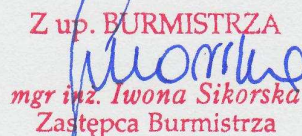 Z up. BURMISTRZA
mgr inż. Iwona Sikorska
Zastępca Burmistrza